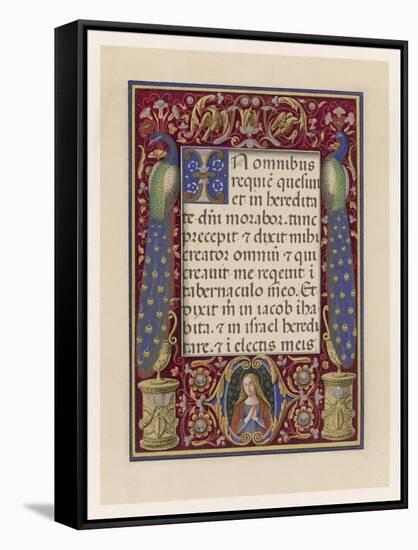 IN omnibus
requiē quesiui
et in heredita
te dñi morabor. tunc
precepit ⁊ dixit mihi
creator omniū ⁊ qui
creauit me requeuit i
tabernaculo meo. Et
dixit m̄ in iacob iha
bita. ⁊ in israel heredi
tare. ⁊ i electis meis